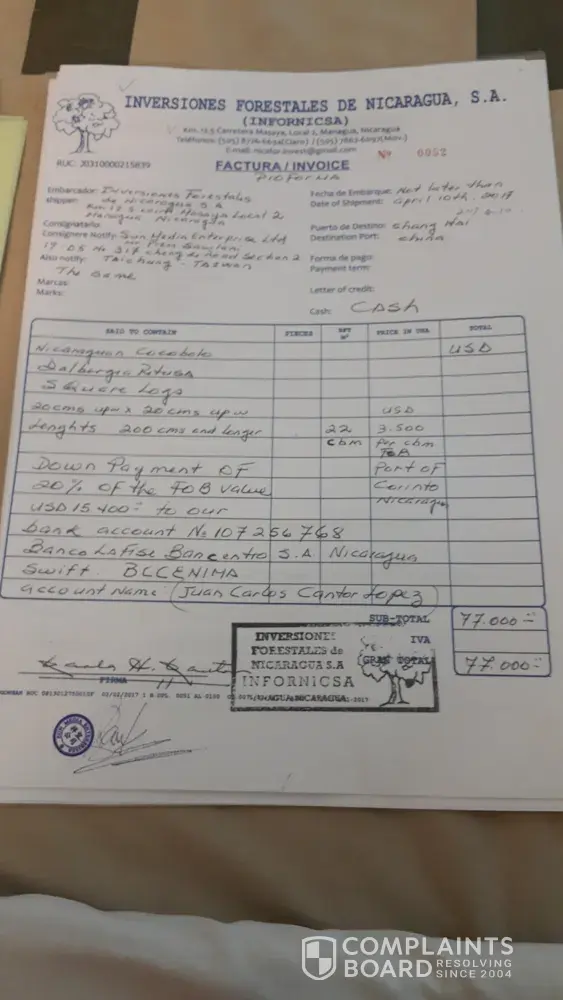 INVERSIONES FORESTALES DE NICARAGUA, S.A.
(INFORNICSA)
Km. 12.5 Carretera Masaya, Local 2, Managua, Nicaragua
E-mail: nicafor.invest@gmail.com
RUC: J0310000215839
FACTURA / INVOICE
Nº 0052
PROFORMA
Embarcador: Inversiones Forestales
shipper: de Nicaragua S.A
Km 12.5 carr. Masaya Local 2
Managua Nicaragua
Fecha de Embarque: Not later than
Date of Shipment: april 10th. 2017
Consignatario:
Consignere Notify: Sun Media Enterprise Ltd
Puerto de Destino: Shang Hai
Destination Port: china
Road Section 2
Also notify: Taichung - Taiwan
The Same
Forma de pago:
Payment term:
Marcas:
Marks:
Letter of credit:
Cash: CASH
SAID TO CONTAIN PIECES M³ PRICE IN US$ TOTAL
Nicaraguan Cocobolo USD
Dalbergia Retusa
Square Logs
20cms up w x 20 cms up w USD
Lenghts 200 cms and longer 22 3.500
cbm per cbm
FOB
Down Payment OF Port of
20% of the FOB value Corinto
Nicaragua
USD 15.400 to our
bank account Nº 107256768
Banco Lafise Bancentro S.A. Nicaragua
Swift. BCCENIMA
account name: (Juan Carlos Cantor Lopez)
SUB-TOTAL 77.000
IVA
GRAN TOTAL 77.000
INVERSIONES
FORESTALES de
NICARAGUA S.A
INFORNICSA
MANAGUA, NICARAGUA
FIRMA
COMPLAINTS
BOARD RESOLVING
SINCE 2004